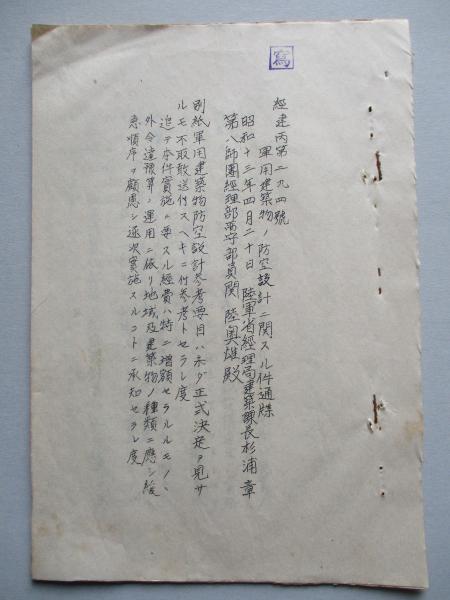 寫
經建丙第二九四號
軍用建築物ノ防空設計ニ関スル件通牒
昭和十三年四月二十日 陸軍省經理局建築課長杉浦章
第八師團經理部留守部員関陸奥雄殿
別紙軍用建築物防空設計参考要目ハ未ダ正式決定ヲ見サ
ルモ不取敢送付スヘキニ付参考トセラレ度
追テ本件實施ニ要スル經費ハ特ニ増額セラルルモノヽ
外令達豫算ノ運用ニ依リ地域及建築物ノ種類ニ應シ緩
急順序ヲ顧慮シ逐次實施スルコトニ承知セラレ度